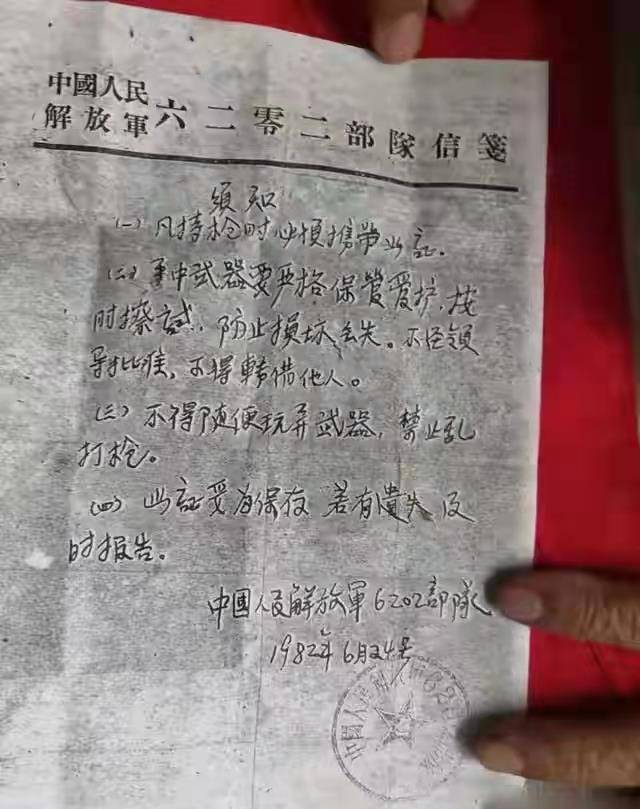 中國人民
解放軍六二零二部隊信箋
須知
(一)凡持枪时必須攜带此証。
(二)手中武器要严格保管爱护,按
时擦試,防止損坏丢失。不经領
导批准,不得轉借他人。
(三)不得随便玩弄武器,禁止乱
打枪。
(四)此証要为保存 若有遺失 及
时报告。
中國人民解放軍6202部隊
1982年6月24号
中國人民解放軍